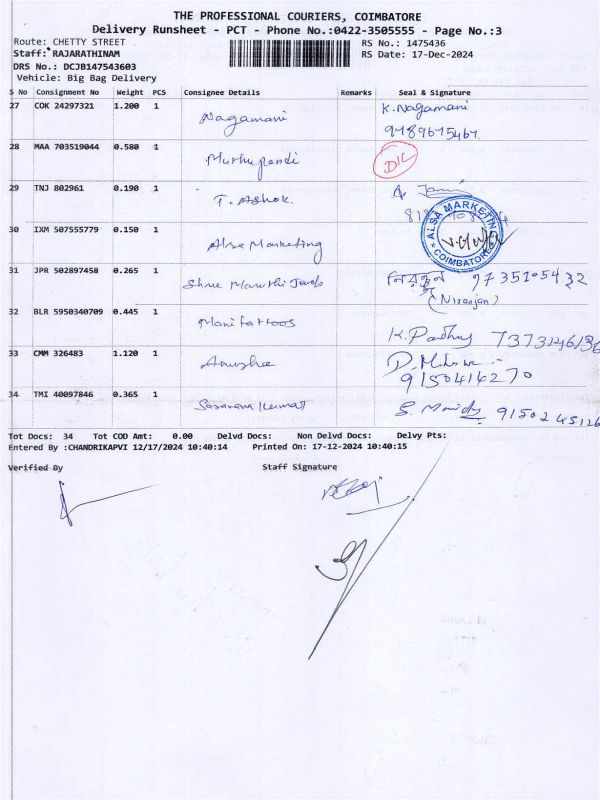 THE PROFESSIONAL COURIERS, COIMBATORE
Delivery Runsheet - PCT - Phone No.:0422-3505555 - Page No.:3
Route: CHETTY STREET RS No.: 1475436
Staff: RAJARATHINAM RS Date: 17-Dec-2024
DRS No.: DCJB147543603
Vehicle: Big Bag Delivery
S No Consignment No Weight PCS Consignee Details Remarks Seal & Signature
27 COK 24297321 1.200 1 Nagamani K. Nagamani
9789675467
28 MAA 703519044 0.580 1 Muthupandi D/L
29 TNJ 802961 0.190 1 T. Ashok.
30 IXM 507555779 0.150 1 Alsa Marketing ALSA MARKETING COIMBATORE
31 JPR 502897458 0.265 1 Shree Maruthi நிரஞ்சன் 9735105432
(Niranjan)
32 BLR 5950340709 0.445 1 Mani tattoos
33 CMM 326483 1.120 1 Anusha
9150414270
34 TMI 40097846 0.365 1 Saravana Kumar 9150245126
Tot Docs: 34 Tot COD Amt: 0.00 Delvd Docs: Non Delvd Docs: Delvy Pts:
Entered By :CHANDRIKAPVI 12/17/2024 10:40:14 Printed On: 17-12-2024 10:40:15
Verified By Staff Signature